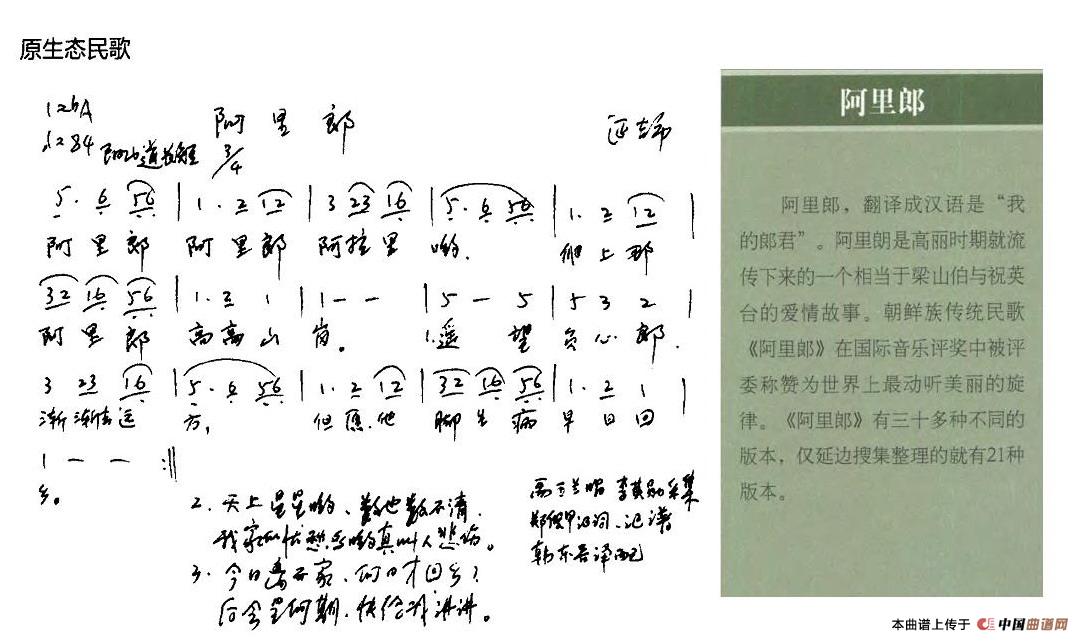 原生态民歌
1=bA
阿里郎
3/4
5. 6 56 | 1. 2 12 | 3 23 16 | 5. 6 56 | 1. 2 12 |
阿里郎 阿里郎 阿拉里 哟. 他上那
32 16 56 | 1. 2 1 | 1 - - | 5 - 5 | 5 3 2 |
阿里郎 高高山岗。 1.遥望负心郎.
3 23 16 | 5. 6 56 | 1. 2 12 | 32 16 56 | 1. 2 1 |
渐渐去远方, 但愿他脚生病早日回
1 - - :||
乡。
2. 天上星星哟、数也数不清.
我家的忧愁哟真叫人悲伤。
3. 今日离开家.何日才回乡?
后会是何期.快给我讲讲。
采集
记谱
韩东吾译配
阿里郎
阿里郎，翻译成汉语是“我
的郎君”。阿里朗是高丽时期就流
传下来的一个相当于梁山伯与祝英
台的爱情故事。朝鲜族传统民歌
《阿里郎》在国际音乐评奖中被评
委称赞为世界上最动听美丽的旋
律。《阿里郎》有三十多种不同的
版本，仅延边搜集整理的就有21种
版本。
本曲谱上传于 中国曲谱网